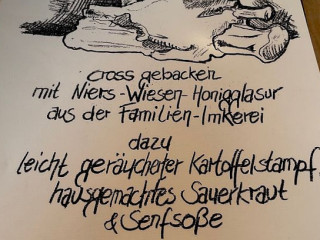 cross gebacken
mit Niers-Wiesen-Honigglasur
aus der Familien-Imkerei
dazu
leicht geräucherter Kartoffelstampf,
hausgemachtes Sauerkraut
& Senfsoße